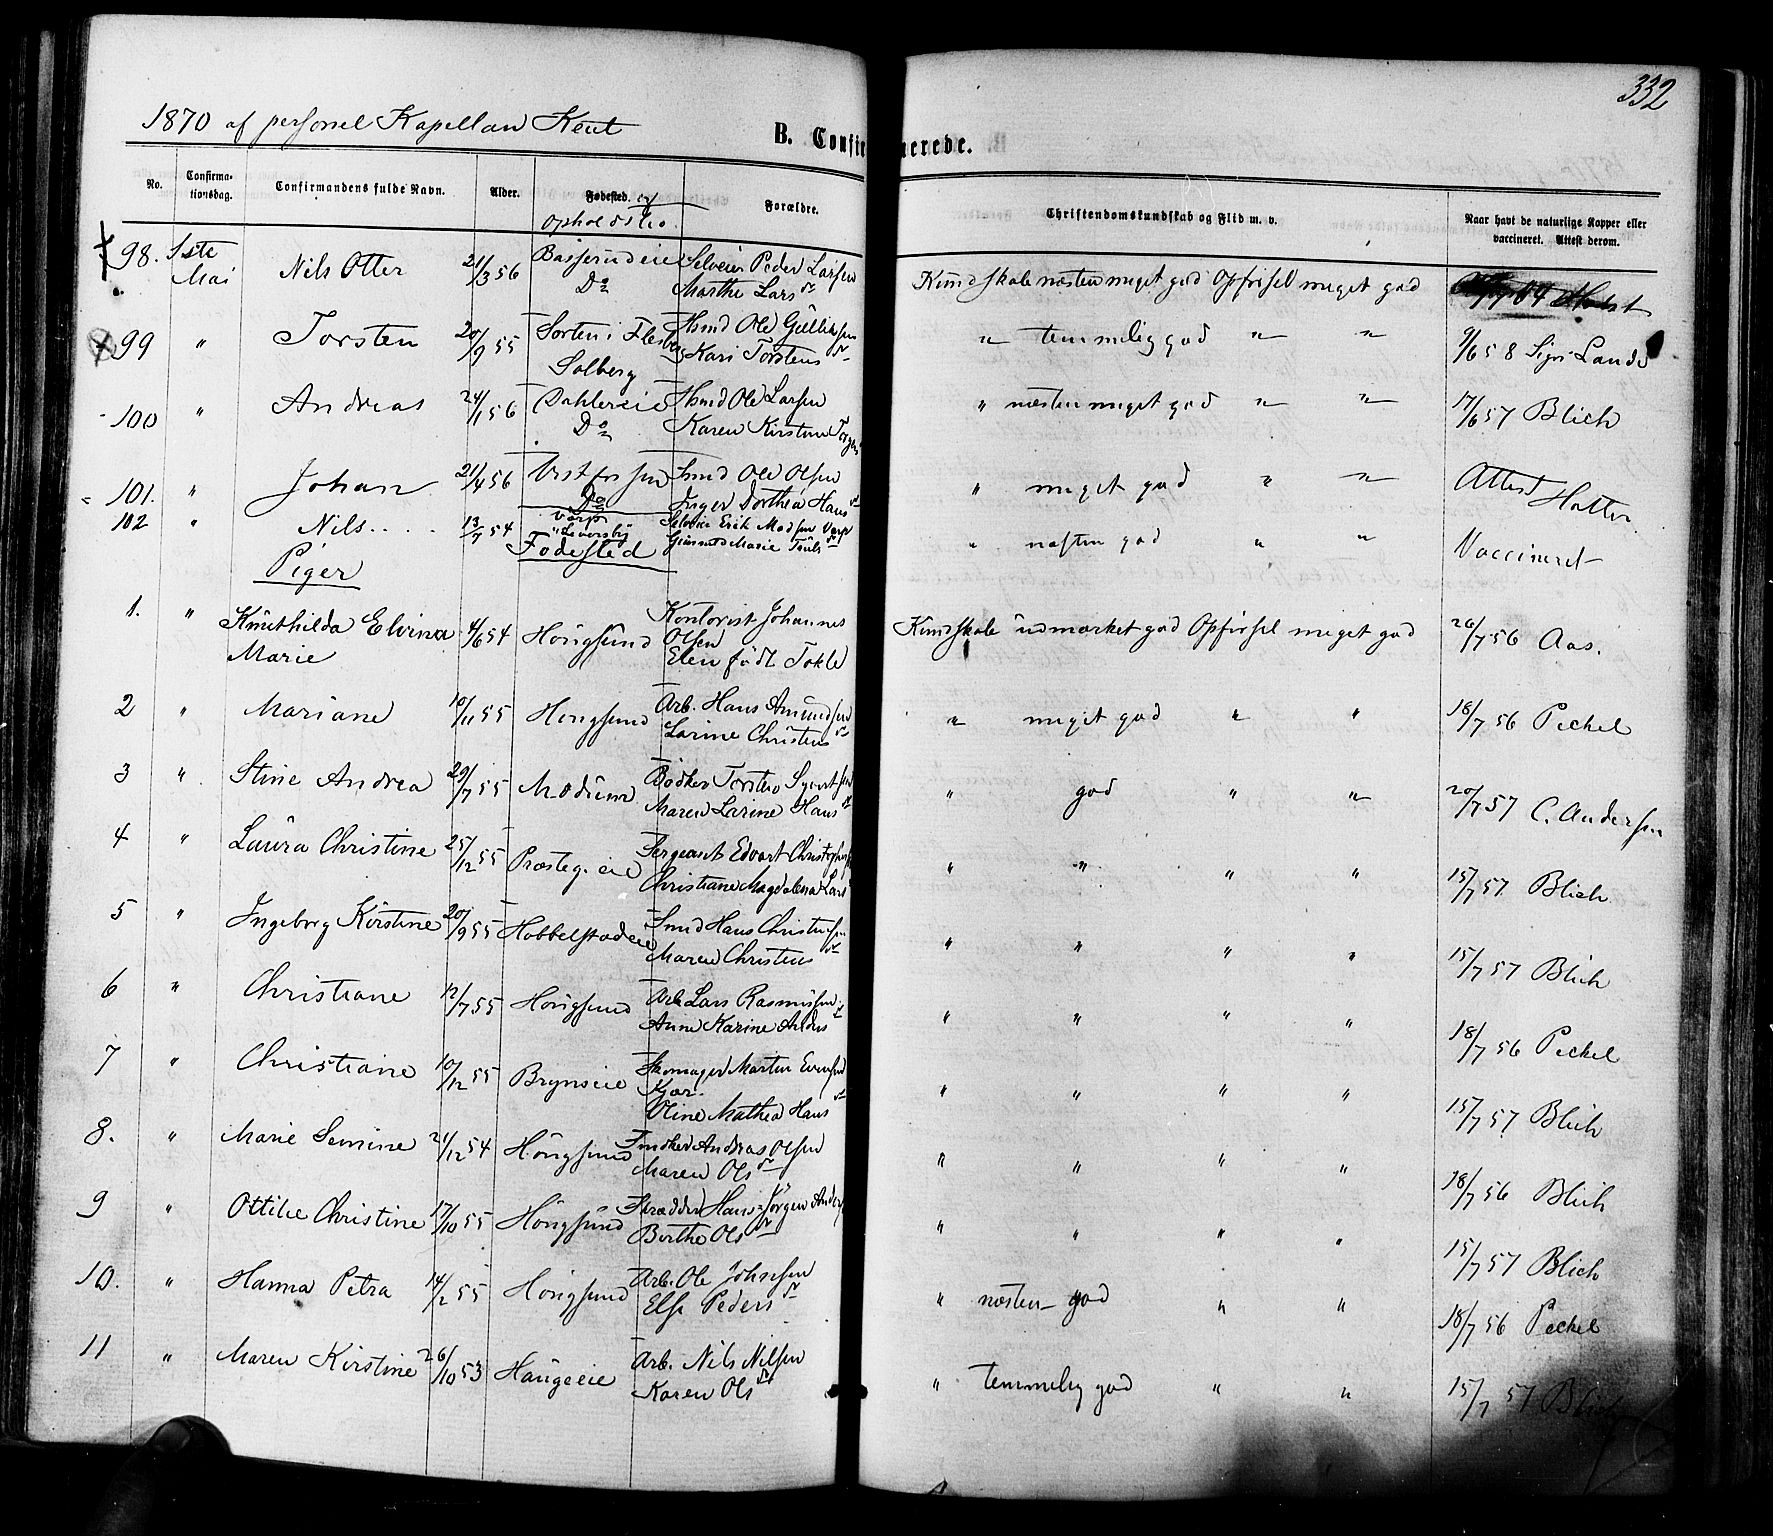 332
1870 af personel Kapellan Keut
B. Confirmerede.
No. Confirmationsdag. Confirmandens fulde Navn. Alder. Fødested. og Opholdssted. Forældre. Christendomskundskab og Flid m. v. Naar havt de naturlige Kopper eller vaccineret. Attest derom.
98. 1ste Mai Nils Otter 21/3 56 Basserudeie Do Selveier Peder Larsen Marthe Larsdr Kundskab næsten meget god Opførsel meget god
99 " Torsten 20/9 55 Sorten i Flesberg Solberg Hmd Ole Gulliksen Kari Torstensdr " temmelig god " " 9/6 58 Sign: Lande
100 " Andreas 24/1 56 Dahlereie Do Hmd Ole Larsen Karen Kirstine " næsten meget god " " 17/6 57 Blich
101. " Johan 21/4 56 Vestfossen Do Smd Ole Olsen Inger Dorthea Hansdr " meget god " " Attest Hotter
102 " Nils 13/7 54 Varp Selveier Erik Madsen Varp " næsten god " " Vaccineret
Fødested
Piger
1. " Knuthilda Elvina Marie 4/6 54 Hougsund Kontorist Johannes Olsen Elen født Tokle Kundskab udmærket god Opførsel meget god 26/7 56 Aas.
2 " Mariane 10/11 55 Hougsund Arb. Hans Amundsen Larine Christensdr " meget god " " 18/7 56 Peckel
3 " Stine Andrea 29/7 55 Modum Bødker Torsten Syvertsen Maren Larine Hansdr " god " " 20/7 57 C. Andersen
4 " Laura Christine 25/12 55 Præsteg. eie Sergeant Edvart Christophersen Christiane Magdalena Larsdr " " " " 15/7 57 Blich
5 " Ingeborg Kirstine 20/9 55 Hobbelstadeie Smd Hans Christensen Maren Christensdr " " " " 15/7 57 Blich
6 " Christiane 12/7 55 Hougsund Arb Lars Rasmussen Anne Karine Andersdr " " " " 18/7 56 Peckel
7 " Christiane 10/12 55 Brynseie Skomager Martin Evensen Kjær. Oline Mathea Hansdr " " " " 15/7 57 Blich
8. " Marie Semine 21/12 54 Hougsund Snedker Andreas Olsen Maren Olsdr " " " " 18/7 56 Blich
9 " Ottilie Christine 17/10 55 Hougsund Skrædder Hans Jørgen Anders Berthe Olsdr " " " " 15/7 57 Blich
10. " Hanna Petra 14/2 55 Hougsund Arb. Ole Johnsen Else Pedersdr " næsten god " " 18/7 56 Peckel
11 " Maren Kirstine 26/10 53 Haugeeie Arb. Nils Nilsen Karen Olsdr " temmelig god " " 15/7 57 Blich